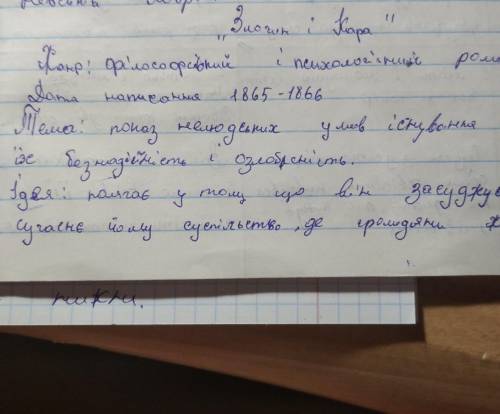 "Злочин і Кара"
Жанр: філософський і психологічний рома
Дата написання 1865-1866
Тема: показ нелюдських умов існування
їх безнадійність і озлобленість.
Ідея: полягає у тому що він засуджує
сучасне йому суспільство, де громадяни ж